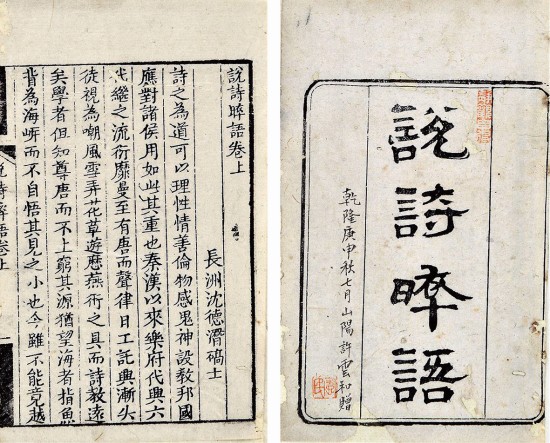 說詩晬語
乾隆庚申秋七月山陽許雲和贈
說詩晬語卷上
長洲沈德潛碻士
詩之為道可以理性情善倫物感鬼神設教邦國
應對諸侯用如此其重也秦漢以來樂府代興六
代繼之流衍靡曼至有唐而聲律日工託興漸失
徒視為嘲風雪弄花草遊歷燕衎之具而詩教遠
矣學者但知尊唐而不上窮其源猶望海者指魚
背為海岸而不自悟其見之小也今雖不能竟越
說詩晬語卷上